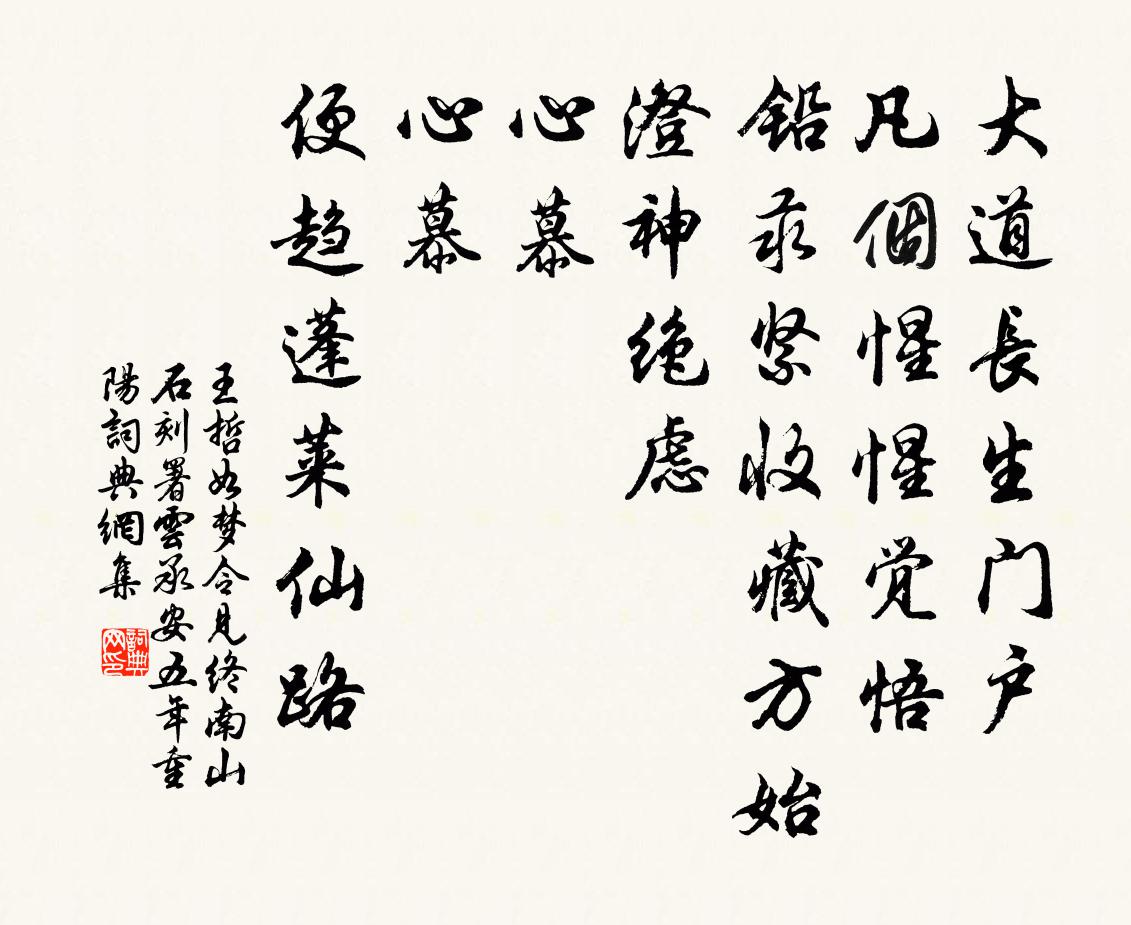 大道長生门户
凡個惺惺觉悟
铅汞紧收藏方始
澄神绝虑
心慕
心慕
便趋蓬莱仙路
王哲如梦令见终南山
石刻署雲承安五年重
陽詞典網集
詞典网印